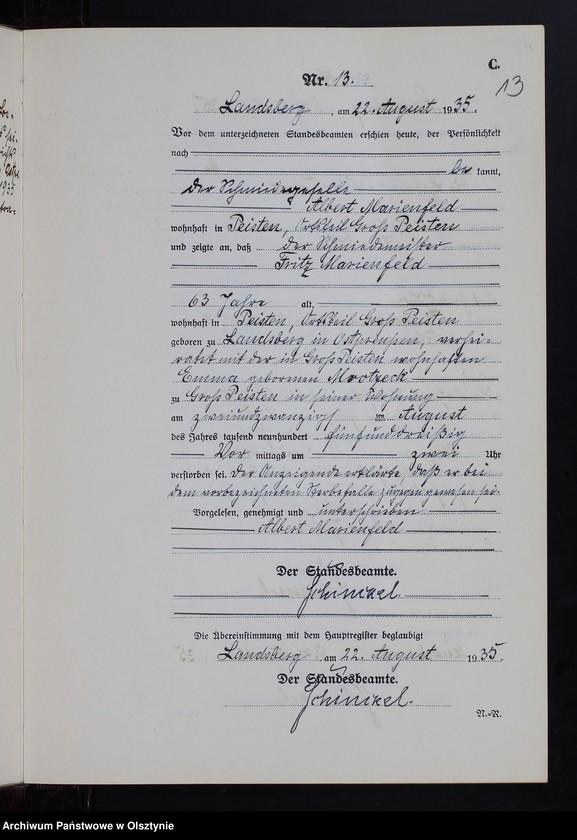 C.
Nr. 13.
13
Landsberg, am 22. August 1935.
Vor dem unterzeichneten Standesbeamten erschien heute, der Persönlichkeit
nach
be kannt,
der Schmiedegeselle
Albert Marienfeld
wohnhaft in Peisten, Ortsteil Groß Peisten
und zeigte an, daß der Schmiedemeister
Fritz Marienfeld
63 Jahre alt,
wohnhaft in Peisten, Ortsteil Groß Peisten
geboren zu Landsberg in Ostpreußen, verhei-
ratet mit der in Groß Peisten wohnhaften
Emma geborenen
zu Groß Peisten in seiner Wohnung
am zweiundzwanzigsten August
des Jahres tausend neunhundert fünfunddreißig
Vor mittags um zwei Uhr
verstorben sei. Der Anzeigende erklärte, daß er bei
dem vorbezeichneten Sterbefalle zugegen gewesen sei.
Vorgelesen, genehmigt und unterschrieben
Albert Marienfeld
Der Standesbeamte.
Schinkel.
Die Übereinstimmung mit dem Hauptregister beglaubigt
Landsberg, am 22. August 1935.
Der Standesbeamte.
Schinkel.
N.-R.
Archiwum Państwowe w Olsztynie